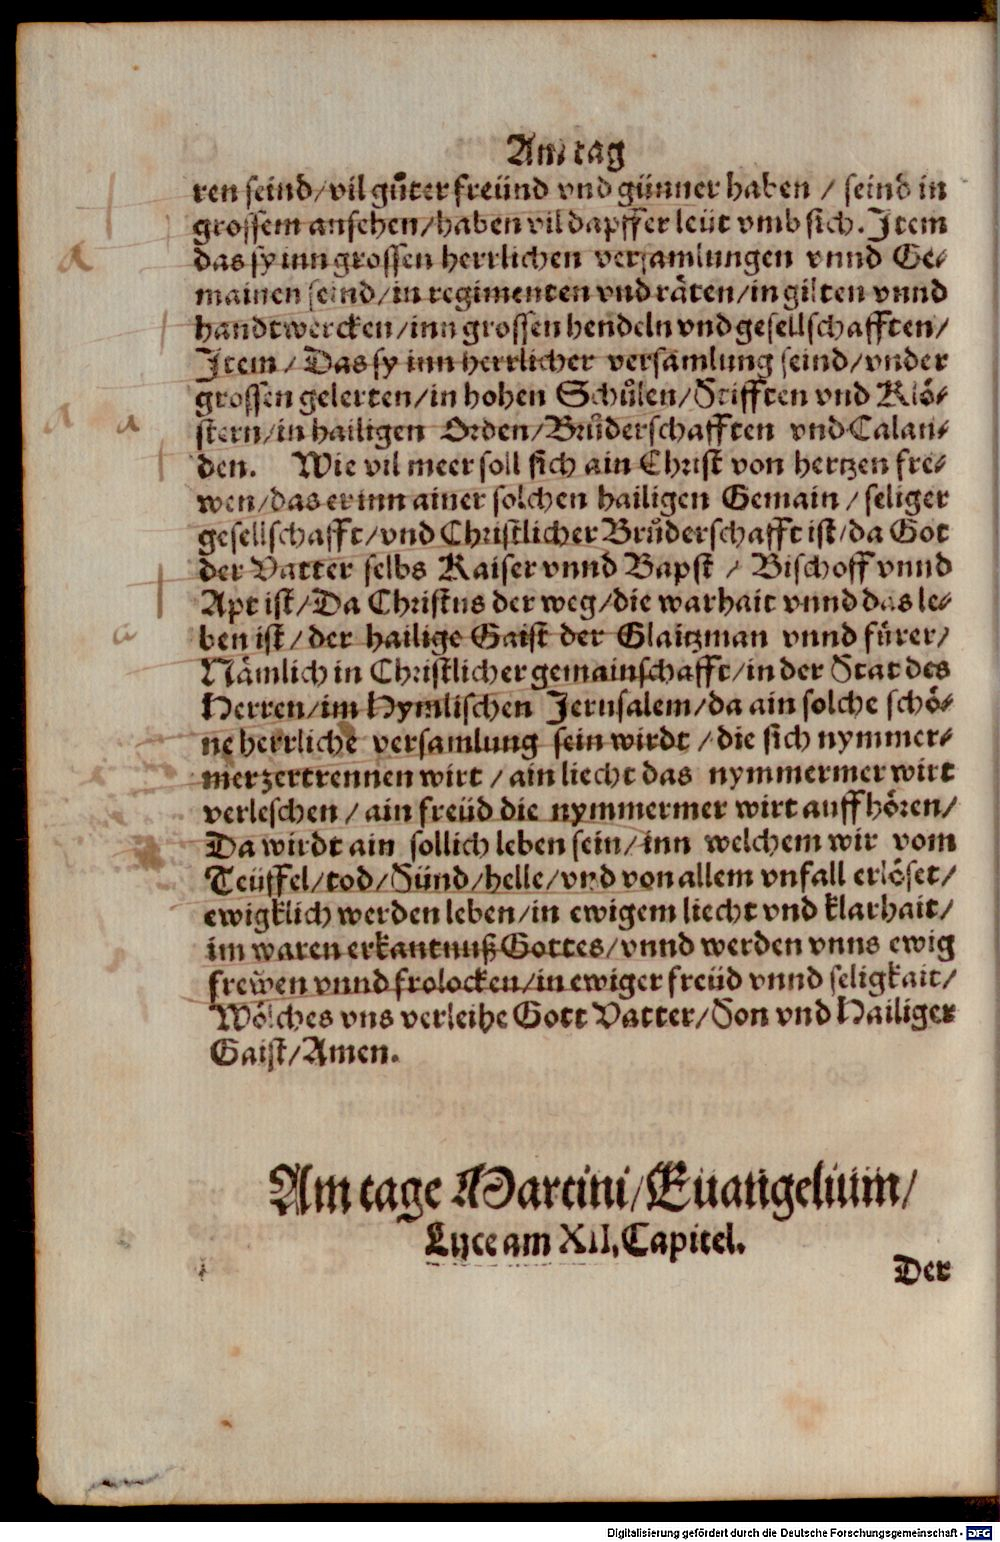 Am tag
ren seind/vil gůter freünd vnd günner haben / seind in
grossem ansehen/haben vil dapffer leüt vmb sich. Item
das sy inn grossen herrlichen versamlungen vnnd Ge⸗
mainen seind/in regimenten vnd räten/in gilten vnnd
handtwercken/inn grossen hendeln vnd gesellschafften/
Item/Das sy inn herrlicher versamlung seind/vnder
grossen gelerten/in hohen Schůlen/Stifften vnd Klö⸗
stern/in hailigen Orden/Brůderschafften vnd Calan⸗
den. Wie vil meer soll sich ain Christ von hertzen fre⸗
wen/das er inn ainer solchen hailigen Gemain/seliger
gesellschafft/vnd Christlicher Brůderschafft ist/da Got
der Vatter selbs Kaiser vnnd Bapst / Bischoff vnnd
Apt ist/Da Christus der weg/die warhait vnnd das le⸗
ben ist/der hailige Gaist der Glaitzman vnnd fürer/
Nämlich in Christlicher gemainschafft/in der Stat des
Herren/im Hymlischen Jerusalem/da ain solche schö⸗
ne herrliche versamlung sein wirdt / die sich nymmer⸗
mer zertrennen wirt / ain liecht das nymmermer wirt
verleschen / ain freüd die nymmermer wirt auffhören/
Da wirdt ain sollich leben sein/inn welchem wir vom
Teüffel/tod/Sünd/helle/vnd von allem vnfall erlöset/
ewigklich werden leben/in ewigem liecht vnd klarhait/
im waren erkantnuß Gottes/vnnd werden vnns ewig
frewen vnnd frolocken/in ewiger freüd vnnd seligkait/
Wölches vns verleihe Gott Vatter/Son vnd Hailiger
Gaist/Amen.
Am tage Martini/Euangelium/
Luce am XII. Capitel.
Der
a
a
a
a
Digitalisierung gefördert durch die Deutsche Forschungsgemeinschaft - DFG